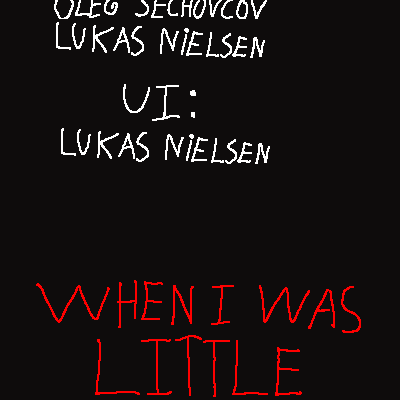 OLEG SECHOVCOV
LUKAS NiELSEN
UI:
LUKAS NiELSEN
WHEN I WAS
LITTLE